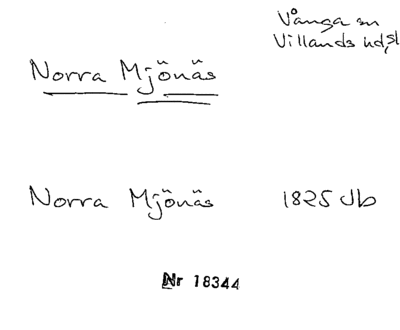 Vånga sn
Villands hd, sl
Norra Mjönäs
Norra Mjönäs 1825 Jb
Nr 18344